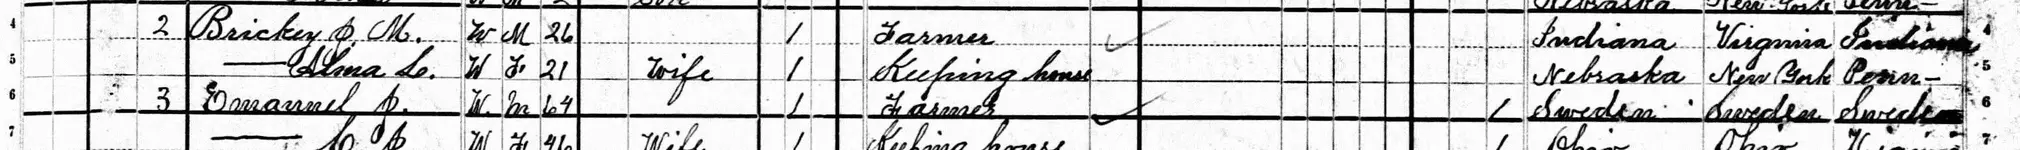 Nebraska New York Penn-
4 2 Brickey J. M. W M 26 1 Farmer Indiana Virginia Indiana 4
5 — Alma L. W F 21 Wife 1 Keeping house Nebraska New York Penn- 5
6 3 Emanuel J. W. M 64 1 Farmer 1 Sweden Sweden Sweden 6
7 — W F 46 Wife 1 Keeping house 1 Ohio Ohio 7